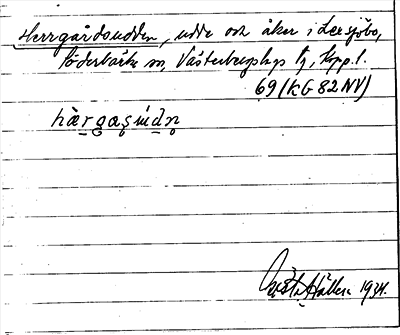 Herrgårdsudden, udde och åker i Lersjöbo,
Söderbärke sn, Västerbergslags tg, Kopp. l.
69 (KG 82 NV)
hàrgaṣúdn̥
1934.